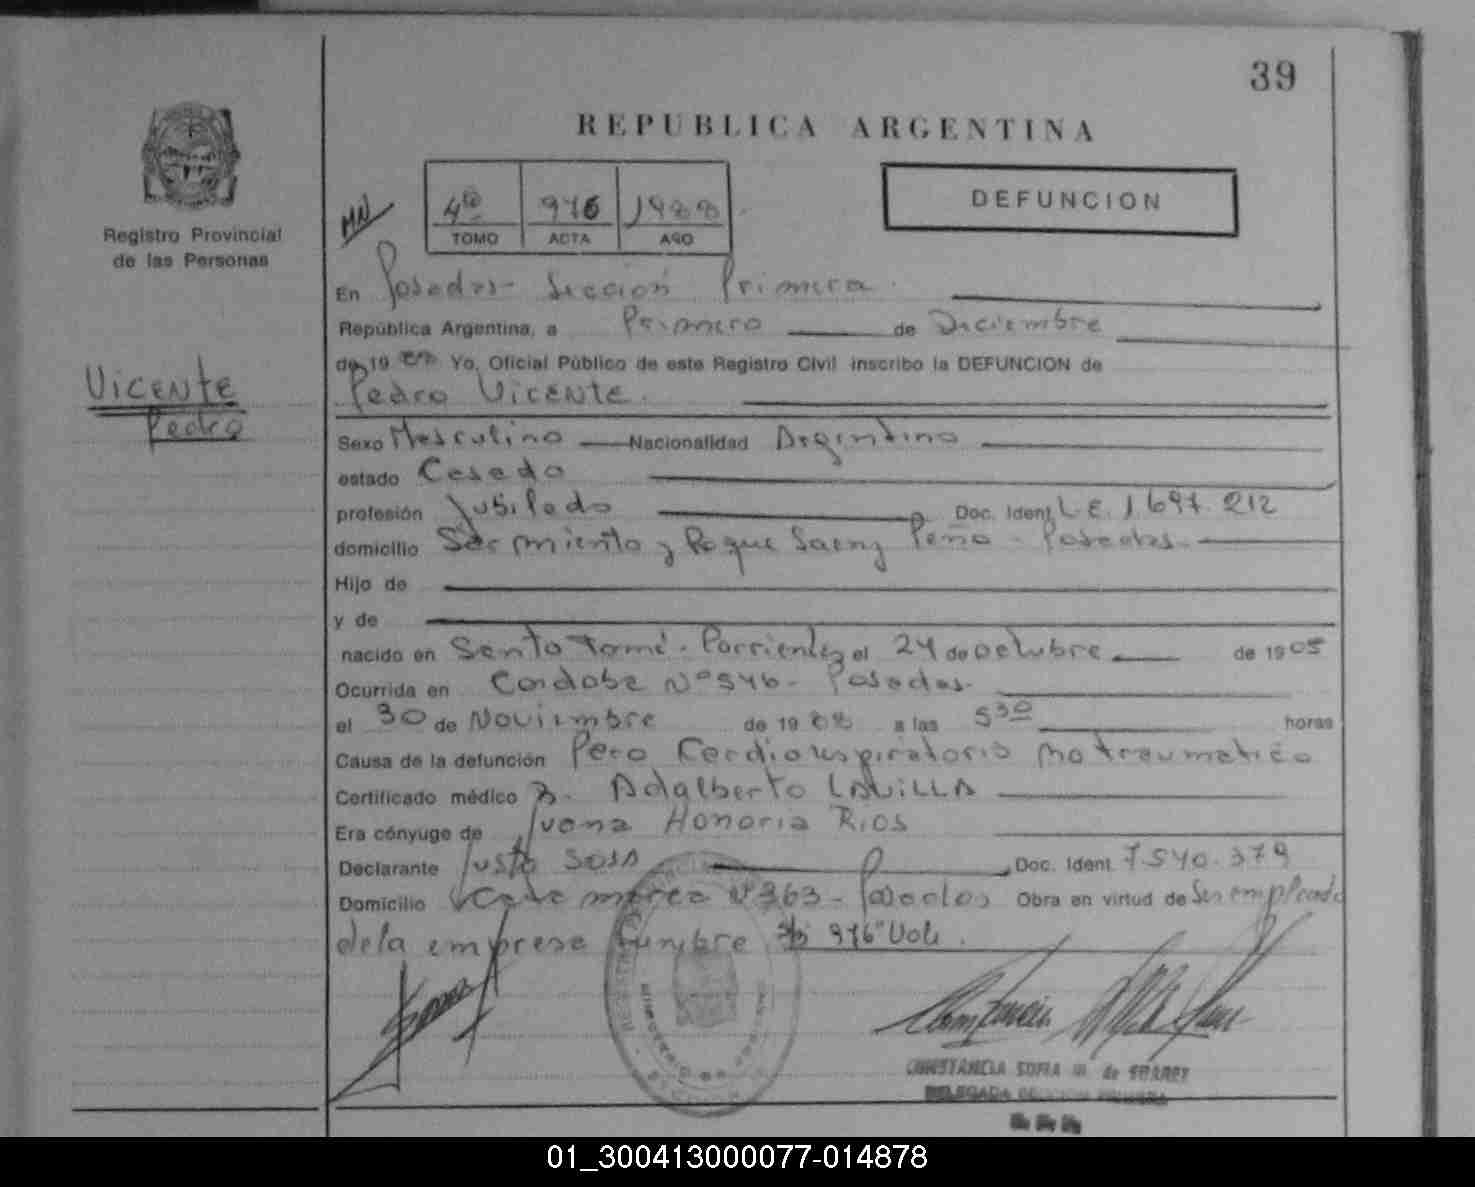 39
REPUBLICA ARGENTINA
DEFUNCION
MN
4to 976 1988
TOMO ACTA AÑO
Registro Provincial
de las Personas
En Posadas - Sección Primera
República Argentina, a Primero de Diciembre
de 19 88 Yo, Oficial Público de este Registro Civil inscribo la DEFUNCION de
Vicente
Pedro
Pedro Vicente.
Sexo Masculino Nacionalidad Argentino
estado Casado
profesión Jubilado Doc. Ident. L.E. 1.697.212
domicilio Sarmiento y Roque Saenz Peña - Posadas
Hijo de
y de
nacido en Santo Tomé - Corrientes el 24 de octubre de 1905
Ocurrida en Cordoba Nº 546 - Posadas
el 30 de Noviembre de 19 88 a las 5 30 horas
Causa de la defunción Paro Cardiorespiratorio no traumatico
Certificado médico Adalberto LAVILLA
Era cónyuge de Juana Honoria Rios
Declarante Justo SOSA Doc. Ident. 7.540.379
Domicilio Catamarca Nº 363 - Posadas Obra en virtud de Ser empleado
de la empresa funebre S/b 976" Vale.
CONSTANCIA SOFIA M. de SUAREZ
DELEGADA SECCION PRIMERA
01_300413000077-014878